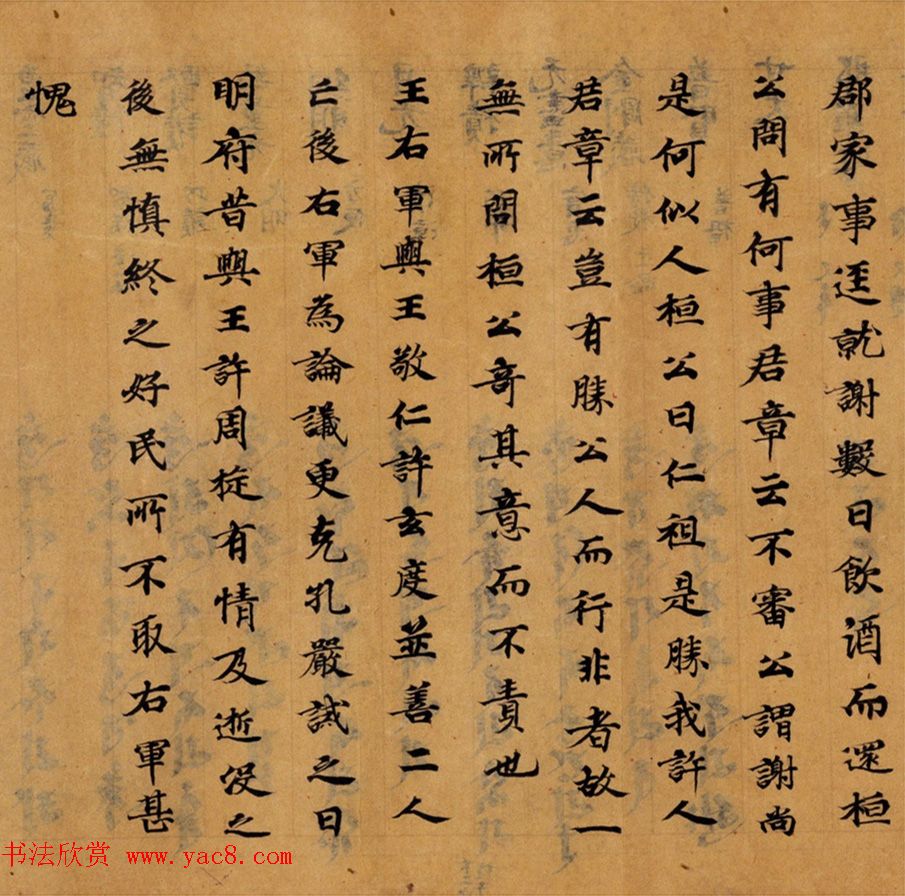 郡家事逕就謝數日飲酒而還桓
公問有何事君章云不審公謂謝尚
是何似人桓公曰仁祖是勝我許人
君章云豈有勝公人而行非者故一
無所問桓公奇其意而不責也
王右軍與王敬仁許玄度並善二人
亡後右軍為論議更克孔嚴誡之曰
明府昔與王許周旋有情及逝沒之
後無慎終之好民所不取右軍甚
愧
书法欣赏 www.yac8.com